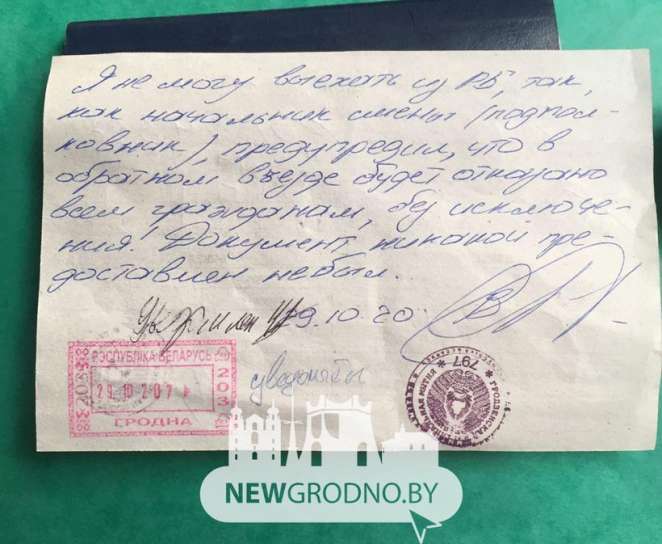 Я не могу выехать из РБ, так,
как начальник смены (подпол-
ковник), предупредил, что в
обратном въезде будет отказано
всем гражданам, без исключе-
ния! Документ, никакой пре-
доставлен небыл.
29.10.20
РЭСПУБЛІКА БЕЛАРУСЬ
203
29 10 20 7
ГРОДНА
797
NEWGRODNO.BY